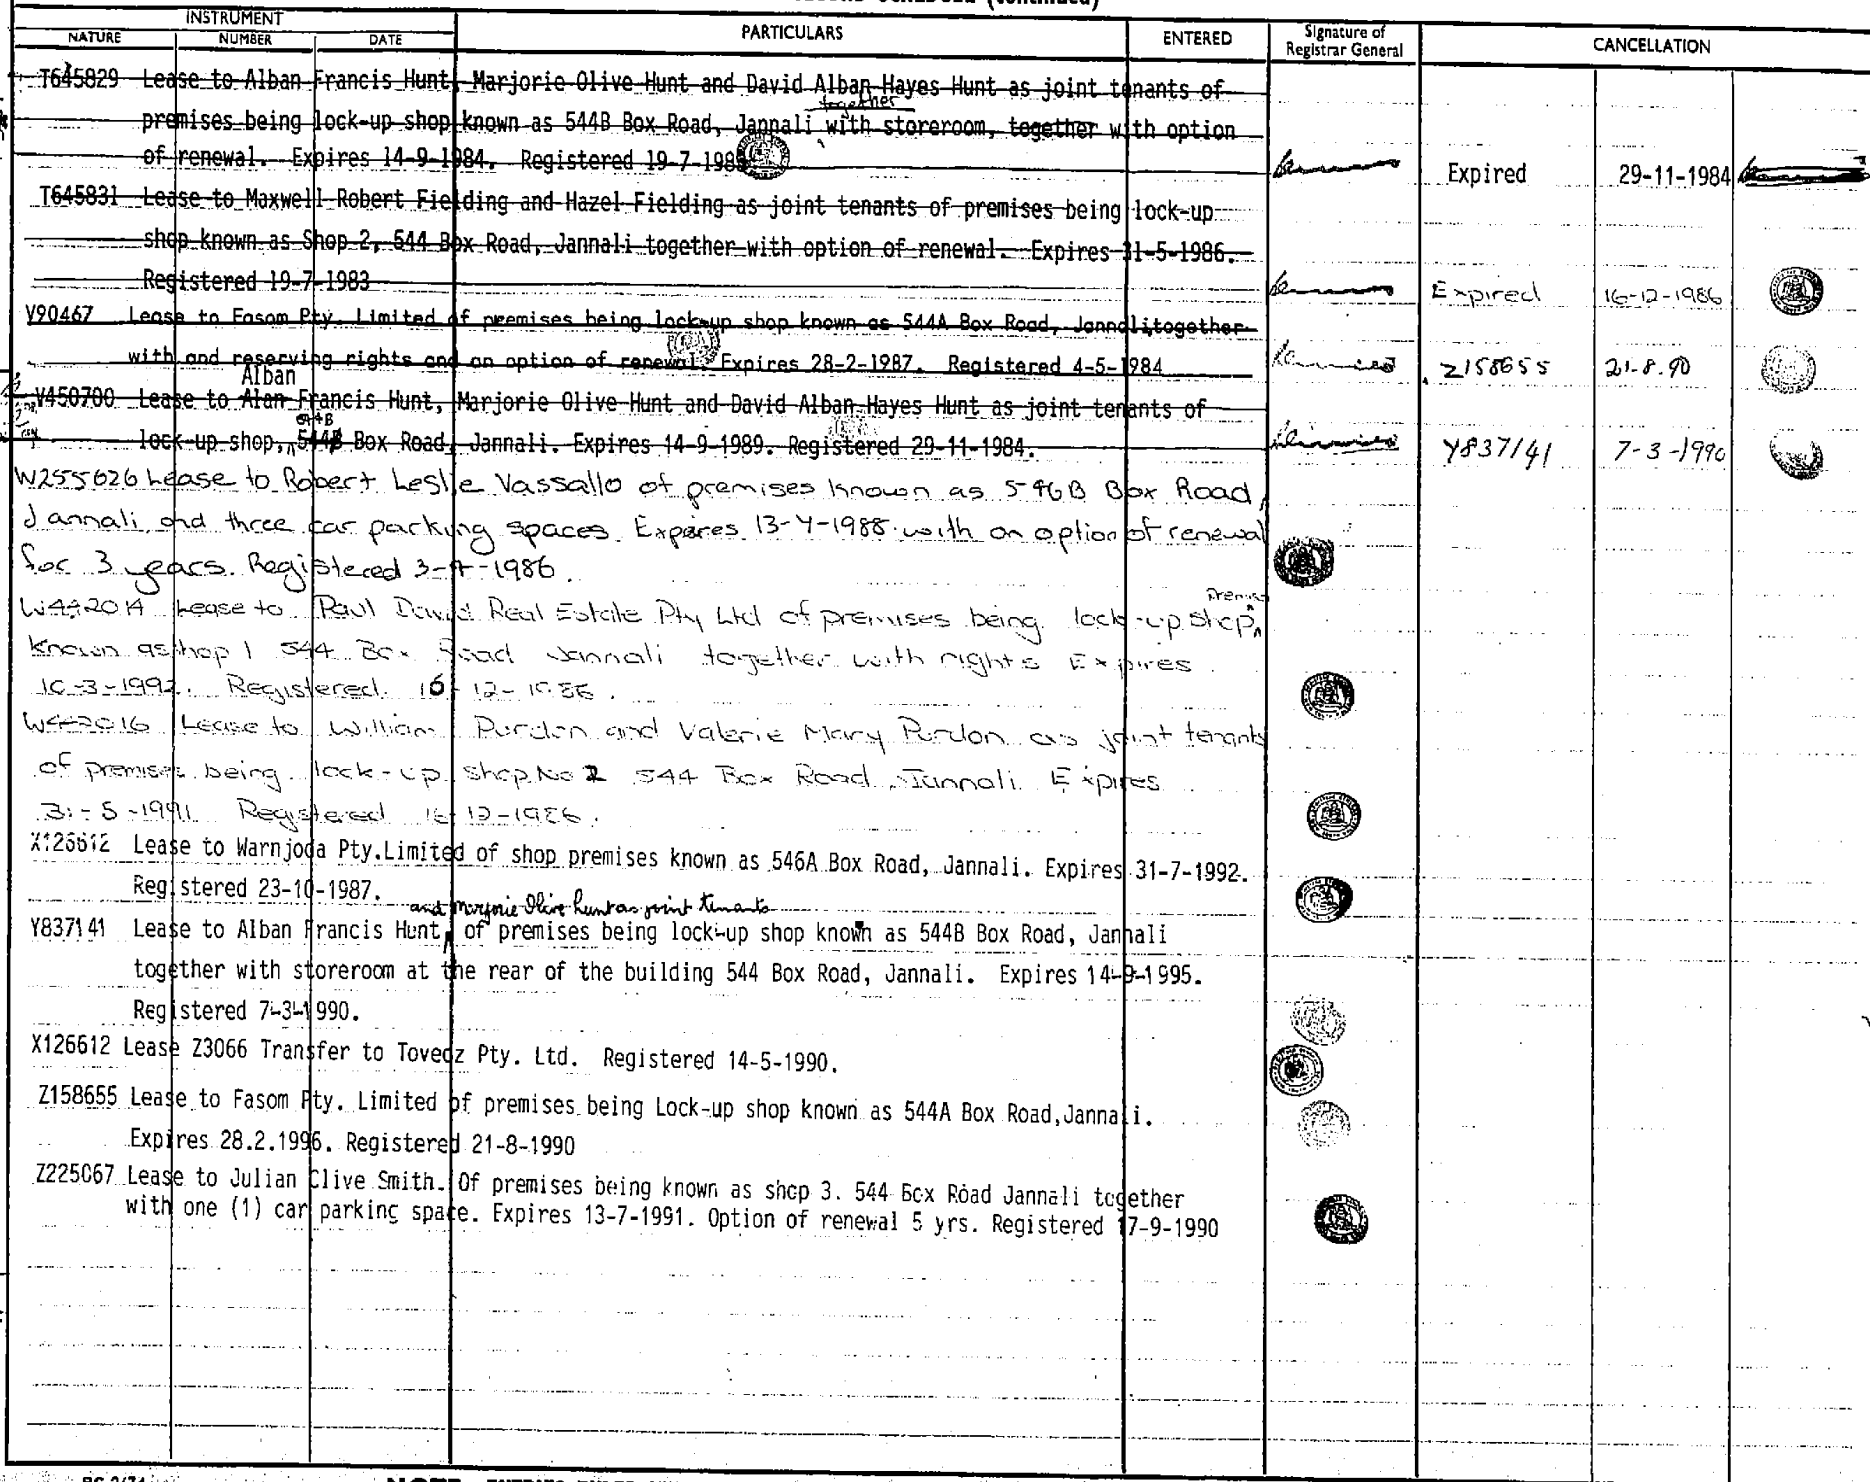 (continued)
INSTRUMENT
NATURE NUMBER DATE PARTICULARS ENTERED Signature of Registrar General CANCELLATION
T645829 Lease to Alban Francis Hunt, Marjorie Olive Hunt and David Alban Hayes Hunt as joint tenants of
together
premises being lock-up shop known as 544B Box Road, Jannali with storeroom, together with option
of renewal. Expires 14-9-1984. Registered 19-7-198 Expired 29-11-1984
T645831 Lease to Maxwell Robert Fielding and Hazel Fielding as joint tenants of premises being lock-up
shop known as Shop 2, 544 Box Road, Jannali together with option of renewal. Expires 31-5-1986.
Registered 19-7-1983 Expired 16-12-1986
V90467 Lease to Fasom Pty. Limited of premises being lock-up shop known as 544A Box Road, Jannali, together
with and reserving rights and an option of renewal. Expires 28-2-1987. Registered 4-5-1984 Z158655 21.8.90
Alban
V450700 Lease to Alan Francis Hunt, Marjorie Olive Hunt and David Alban Hayes Hunt as joint tenants of
544B
lock-up shop, 544B Box Road, Jannali. Expires 14-9-1989. Registered 29-11-1984. Y837141 7-3-1990
W255626 Lease to Robert Leslie Vassallo of premises known as 546B Box Road,
Jannali, and three car parking spaces. Expires 13-4-1988 with an option of renewal
for 3 years. Registered 3-4-1986.
premises
W442014 Lease to Paul David Real Estate Pty Ltd of premises being lock-up shop
known as shop 1 544 Box Road Jannali together with rights Expires
10-3-1992. Registered 16-12-1986.
W442016 Lease to William Purdon and Valerie Mary Purdon as joint tenants
of premises being lock-up shop No 2 544 Box Road Jannali Expires
31-5-1991 Registered 16-12-1986.
X126612 Lease to Warnjoda Pty.Limited of shop premises known as 546A Box Road, Jannali. Expires 31-7-1992.
Registered 23-10-1987.
and Marjorie Olive Hunt as joint tenants
Y837141 Lease to Alban Francis Hunt, of premises being lock-up shop known as 544B Box Road, Jannali
together with storeroom at the rear of the building 544 Box Road, Jannali. Expires 14-9-1995.
Registered 7-3-1990.
X126612 Lease Z3066 Transfer to Tovedz Pty. Ltd. Registered 14-5-1990.
Z158655 Lease to Fasom Pty. Limited of premises being Lock-up shop known as 544A Box Road,Jannali.
Expires 28.2.1996. Registered 21-8-1990
Z225067 Lease to Julian Clive Smith. Of premises being known as shop 3. 544 Box Road Jannali together
with one (1) car parking space. Expires 13-7-1991. Option of renewal 5 yrs. Registered 17-9-1990